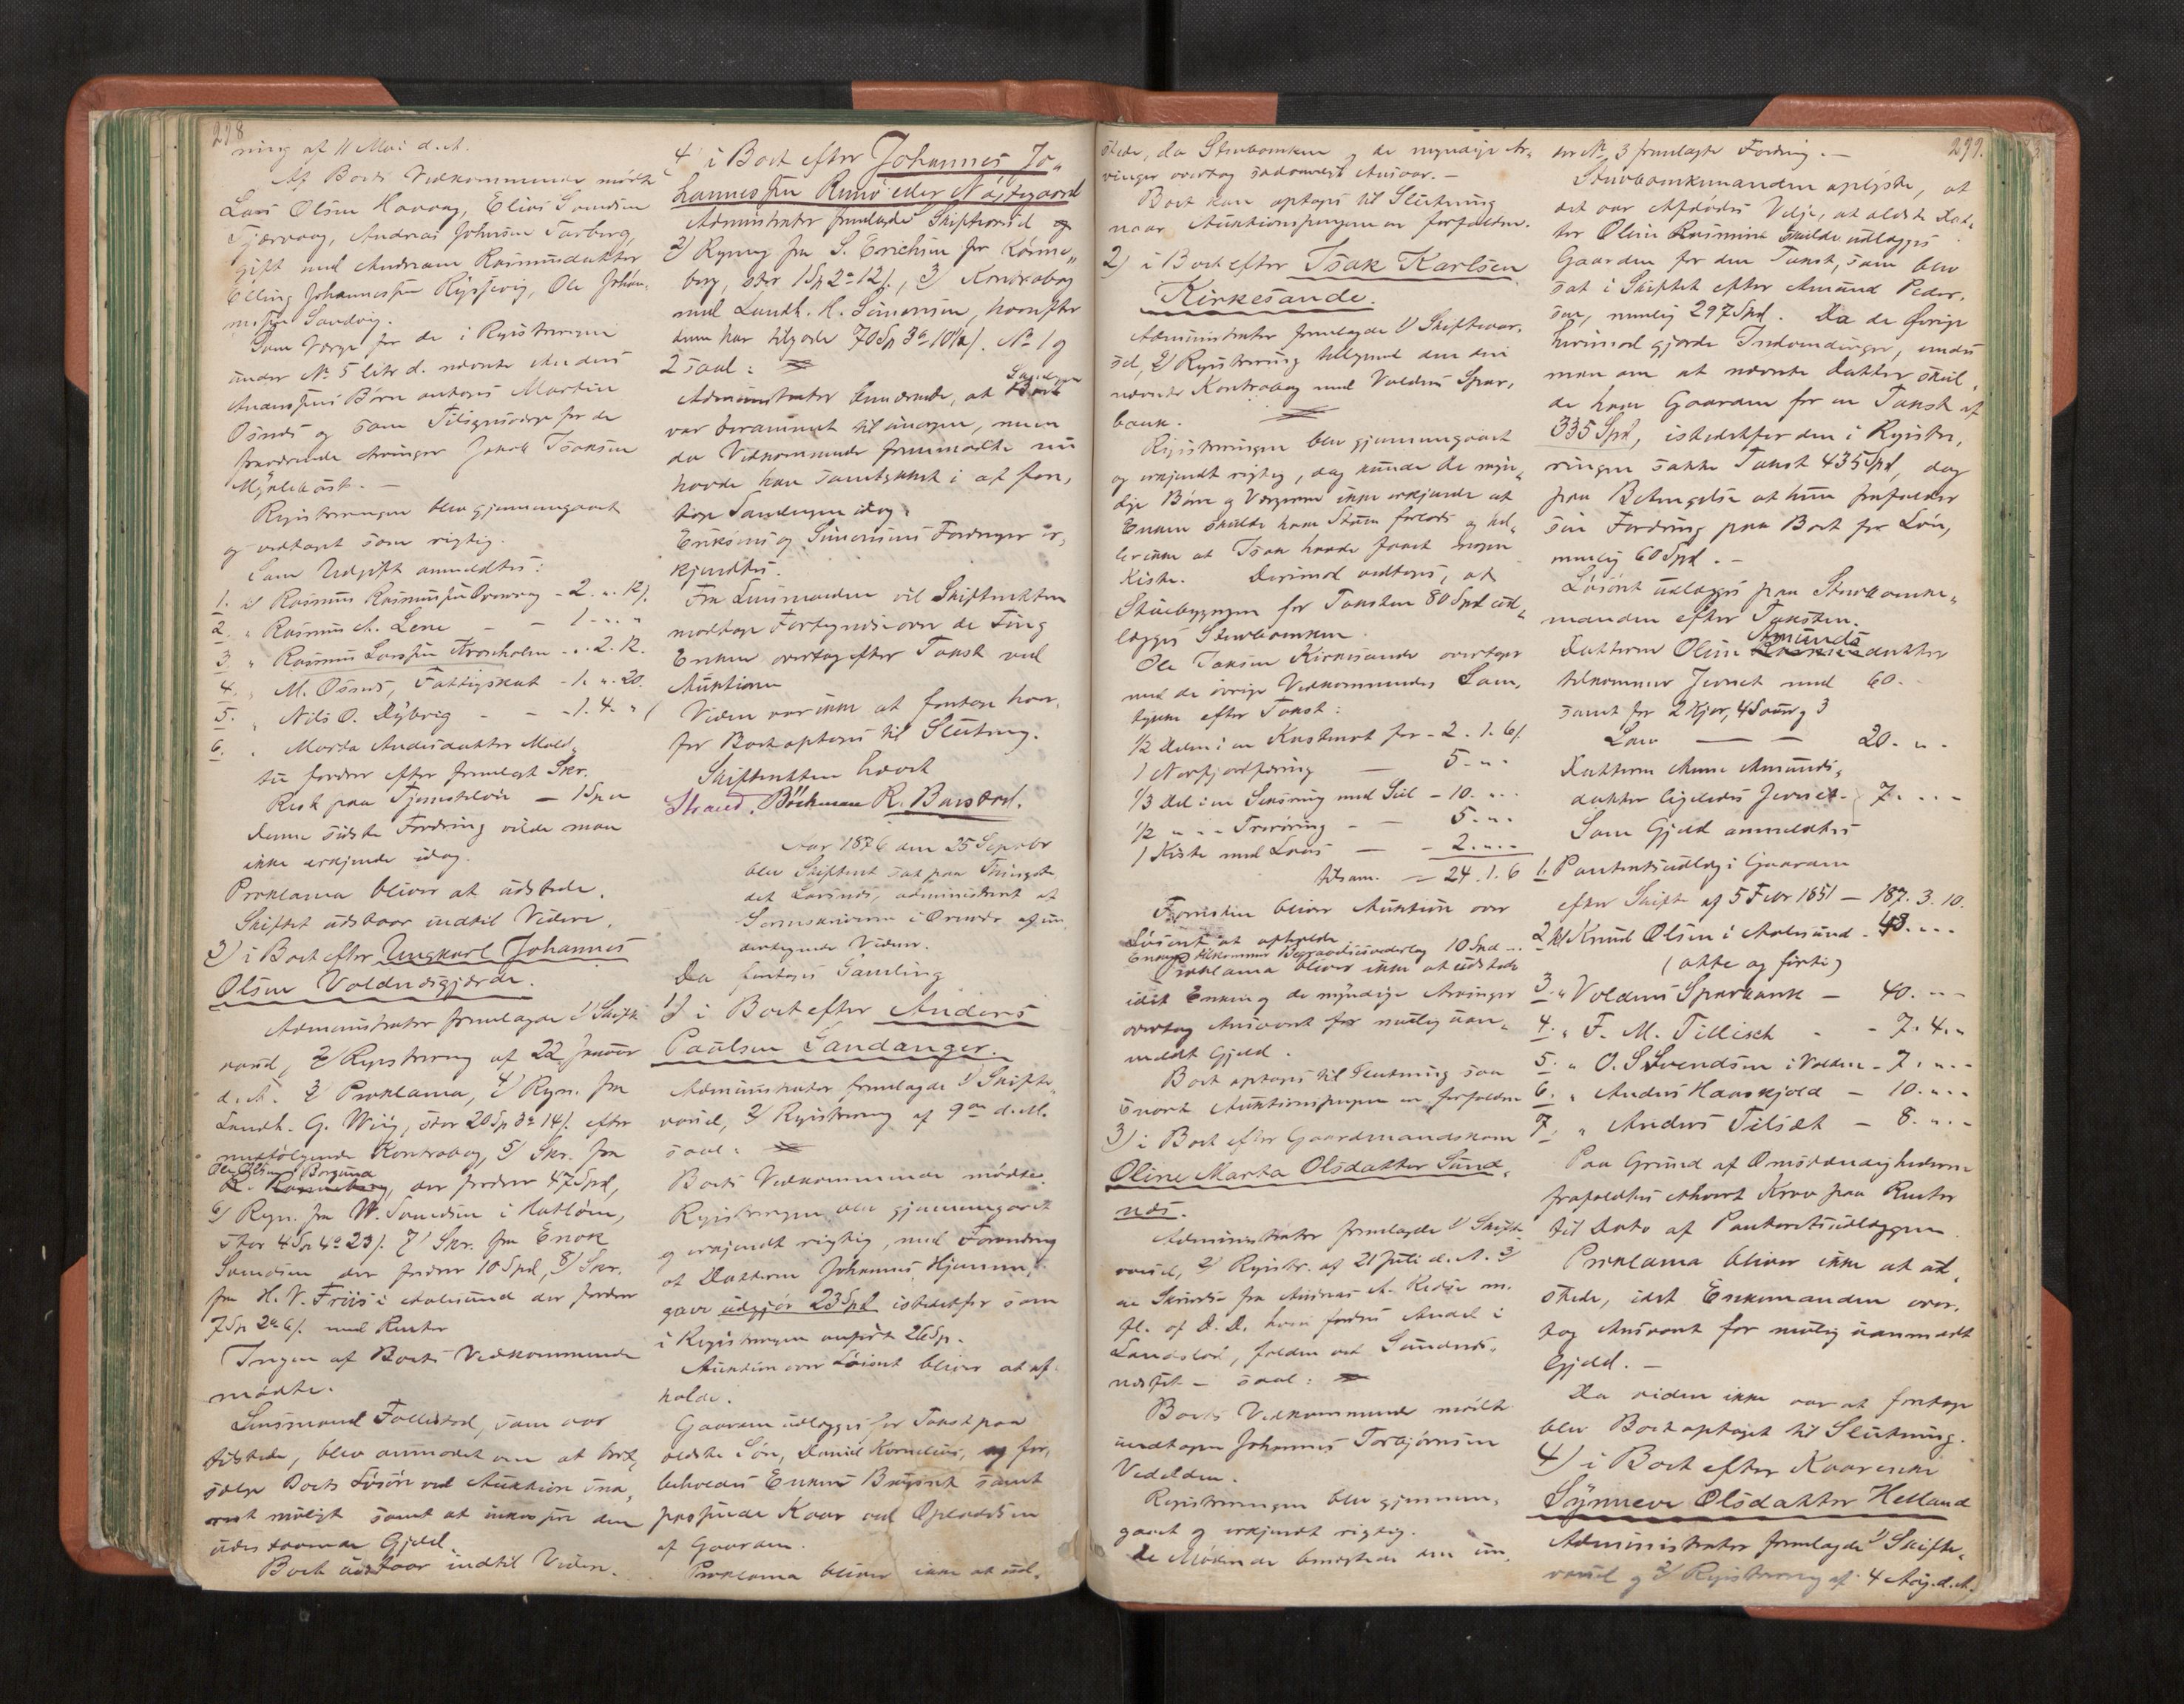 298
ning af 11 Mai d. A.
Af Boets Vedkommende mødte
Lars Olsen Havaag, Elias Svendsen
Tjærvaag, Andreas Johnsen Tarberg,
gift med Andreane Rasmusdatter
Elling Johannessen Røyssevig, Ole Johan-
nessen Sandvig.
Som Værge for de i Registreringen
under No 5 litr d. nævnte Anders
Børn antoges Martin
Osnes og som Tilsynsværge for de
fraværende Arvinger Jakob Isaksen
Myklebust. —
Registreringen blev gjennemgaaet
og vedtaget som rigtig.
Som Udgift anmeldtes:
1. til Rasmus Rasmussen - 2. " 12/.
2. " Rasmus A. Lene - - 1 - . "
3. " Rasmus Larssen Kroksholm - . 2. 12.
4. " M. Osnes, Fattigskat - 1. ". 20.
5. " Nils O. Dybvig - - - 1. 4. "
6. " Marta Andersdatter Mold-
tu fordrer efter fremlagt Skr.
Rest paa Tjenesteløn — 1 Sp "
Denne sidste Fordring vilde man
ikke erkjende idag.
Proklama bliver at udstede.
Skiftet udstaar indtil Videre.
3) i Boet efter Ungkarl Johannes
Olsen Voldnesgjærde.
Administrator fremlagde 1/ Skifte-
varsel, 2/ Registrering af 22 Januar
d. A. 3/ Proklama, 4/ Regn. fra
Landh. G. Wiig, stor 20 Sp 3 o 14/. efter
medfølgende Kontrabog, 5/ Skr. fra
Ole Olsen Borgund
der fordrer 47 Spd,
6/ Regn. fra W. Svendsen i Hatløen,
stor 4 Sp 4 o 23/. 7/ Skr. fra Enok
Svendsen der fordrer 10 Spd, 8/ Skr.
fra H. V. Friis i Aalesund der fordrer
7 Sp 2 o 6/. med Renter
Ingen af Boets Vedkommende
mødte.
Lensmand Follestad, som var
tilstede, blev anmodet om at bort-
sælge Boets Løsøre ved Auktion sna-
rest muligt samt at inkassere den
udestaaende Gjeld.
Boet udstaar indtil Videre.
4) i Boet efter Johannes Jo-
hannessen Remø eller Nøstegaard
Administrator fremlagde Skiftevarsel og
2/ Regning fra S. Erichsen for Kørne-
, stor 1 Sp 2 o 12/., 3/ Kontrabog
med Landh. H. Simonsen, hvorefter
denne har tilgode 70 Sp 3 o 10 1/2/. No 1 og
2 saal:
Administrator bemærkede, at Samlingen
var berammet til imorgen, men
da Vedkommende fremmødte nu
havde han samtykket i at fore-
tage Samlingen idag.
Eriksens og Simonsens Fordringer er-
kjendtes.
Fra Lensmanden vil Skifteretten
modtage Fortegnelse over de Ting
Enken overtog efter Taxst ved
Auktionen
Videre var ikke at foretage hvor-
for Boet optoges til Slutning.
Skifteretten hævet
Strand. Böckman R. Barstad.
Aar 1876 den 25 Septbr
blev Skifteret sat paa Thingste-
det Larsnes, administreret af
Sorenskriveren i Overvær af un-
dertegnede Vidner.
Da foretoges Samling
1) i Boet efter Anders
Paulsen Sandanger.
Administrator fremlagde 1/ Skifte-
varsel, 2/ Registrering af 9de d. M.
saal:
Boets Vedkommende mødte.
Registreringen blev gjennemgaaet
og erkjendt rigtig, med Forandring
at Datteren Johannes Hjemme-
gave udgjør 23 Spd istedetfor som
i Registreringen anført 26 Sp.
Auktion over Løsøret bliver at af-
holde.
Gaarden udlægges for Taxst paa
ældste Søn, Daniel Kornelius, og for-
beholdes Enken Brugsret samt
passende Kaar ved Opladelsen
af Gaarden.
Proklama bliver ikke at ud-
299.
stede, da Stervboenken og de myndige Ar-
vinger overtog saadanligt Ansvar. —
Boet kan optages til Slutning
naar Auktionspengene er forfaldne.
2) i Boet efter Isak Karlsen
Kirkesande.
Administrator fremlagde 1/ Skiftevar-
sel, 2/ Registrering tilligemed den deri
nævnte Kontrabog med Voldens Spar-
bank.
Registreringen blev gjennemgaaet
og erkjendt rigtig, dog kunde de myn-
dige Børn og Værgerne ikke erkjende at
Enken skulde have Stuen forlods og hel-
ler ikke at Isak havde faaet nogen
Kiste. Derimod vedtoges, at
Stuebygningen for Taxsten 80 Spd ud-
lægges Stervboenken.
Ole Isaksen Kirkesande overtager
med de øvrige Vedkommendes Sam-
tykke efter Taxst:
1/2 Delen i en for - 2. 1. 6/.
1 Norfjordfæring — 5. ". -
1/3 del i en Sexæring med Seil - 10. ". -
1/2 " " - Treræring - - 5. ". -
1 Kiste med Laas — - 2. ". -
tilsam. = 24. 1. 6
Forresten bliver Auktion over
Løsøret at afholde
Enken tilkommer Begravelsesvederlag 10 Spd
Proklama bliver ikke at udstede
idet Enken og de myndige Arvinger
overtog Ansvaret for mulig uan-
meldt Gjeld.
Boet optoges til Slutning saa
snart Auktionspengene er forfaldne
3) i Boet efter Gaardmandskone
Oline Marta Olsdatter Sund-
nes.
Administrator fremlagde 1/ Skifte-
varsel, 2/ Registr. af 21 Juli d. A. 3/
en Skrivelse fra Andreas A. Kedse m.
fl. af D. D. hvori fordres Andel i
Landslod, falden ved Sundnes-
næsset — saal:
Boets Vedkommende mødte
undtagen Johannes Torbjørnsen
Vedelden.
Registreringen blev gjennem-
gaaet og erkjendt rigtig.
De Mødende benegtede den un-
der No 3 fremlagte Fordring. —
Stervboenkemanden oplyste, at
det var Afdødes Vilje, at ældste Dat-
ter Oline Rasmine skulde udlægges
Gaarden for den Taxst, som blev
sat i Skiftet efter Amund Peder-
sen, nemlig 297 Spd. Da de Øvrige
herimod gjorde Indvendinger, enedes
man om at nævnte Datter skul-
de have Gaarden for en Taxst af
335 Spd, istedetfor den i Registre-
ringen satte Taxst 435 Spd, dog
paa Betingelse at hun frafalder
sin Fordring paa Boet for Løn,
nemlig 60 Spd. —
Løsøret udlægges paa Stervboenke-
manden efter Taxsten.
Datteren Oline Amunds datter
tilkommer Jevnet med 60. -
samt for 2 Kjør, 4 Sauer og 3
Lam — — 20. ". -
Datteren Anne Amunds-
datter ligeledes Jevnet - 7. . . -
Som Gjeld anmeldtes
1. Panteretsudlæg i Gaarden
efter Skifte af 5 Febr 1851 — 187. 3. 10.
2. til Knud Olsen i Aalesund - 48. . . -
(otte og førti)
3. " Voldens Sparbank — 40. " -
4. " F. M. Tillisch - - 7. 4. "
5. " O. S. Svendsen i Volden - 7. ". -
6. " Anders Haaskjold — 10. ". -
7. " Anders Tilsæt — 8. ". -
Paa Grund af Omstændighederne
frafaldtes ethvert Krav paa Renter
til Dato af Panteretsudlæggene
Proklama bliver ikke at ud-
stede, idet Enkemanden over-
tog Ansvaret for mulig uanmeldt
Gjeld. —
Da videre ikke var at foretage
blev Boet optaget til Slutning.
4) i Boet efter Kaarenke
Synneve Olsdatter Helland
Administrator fremlagde 1/ Skifte-
varsel og 2/ Registrering af 4 Aug. d. A,